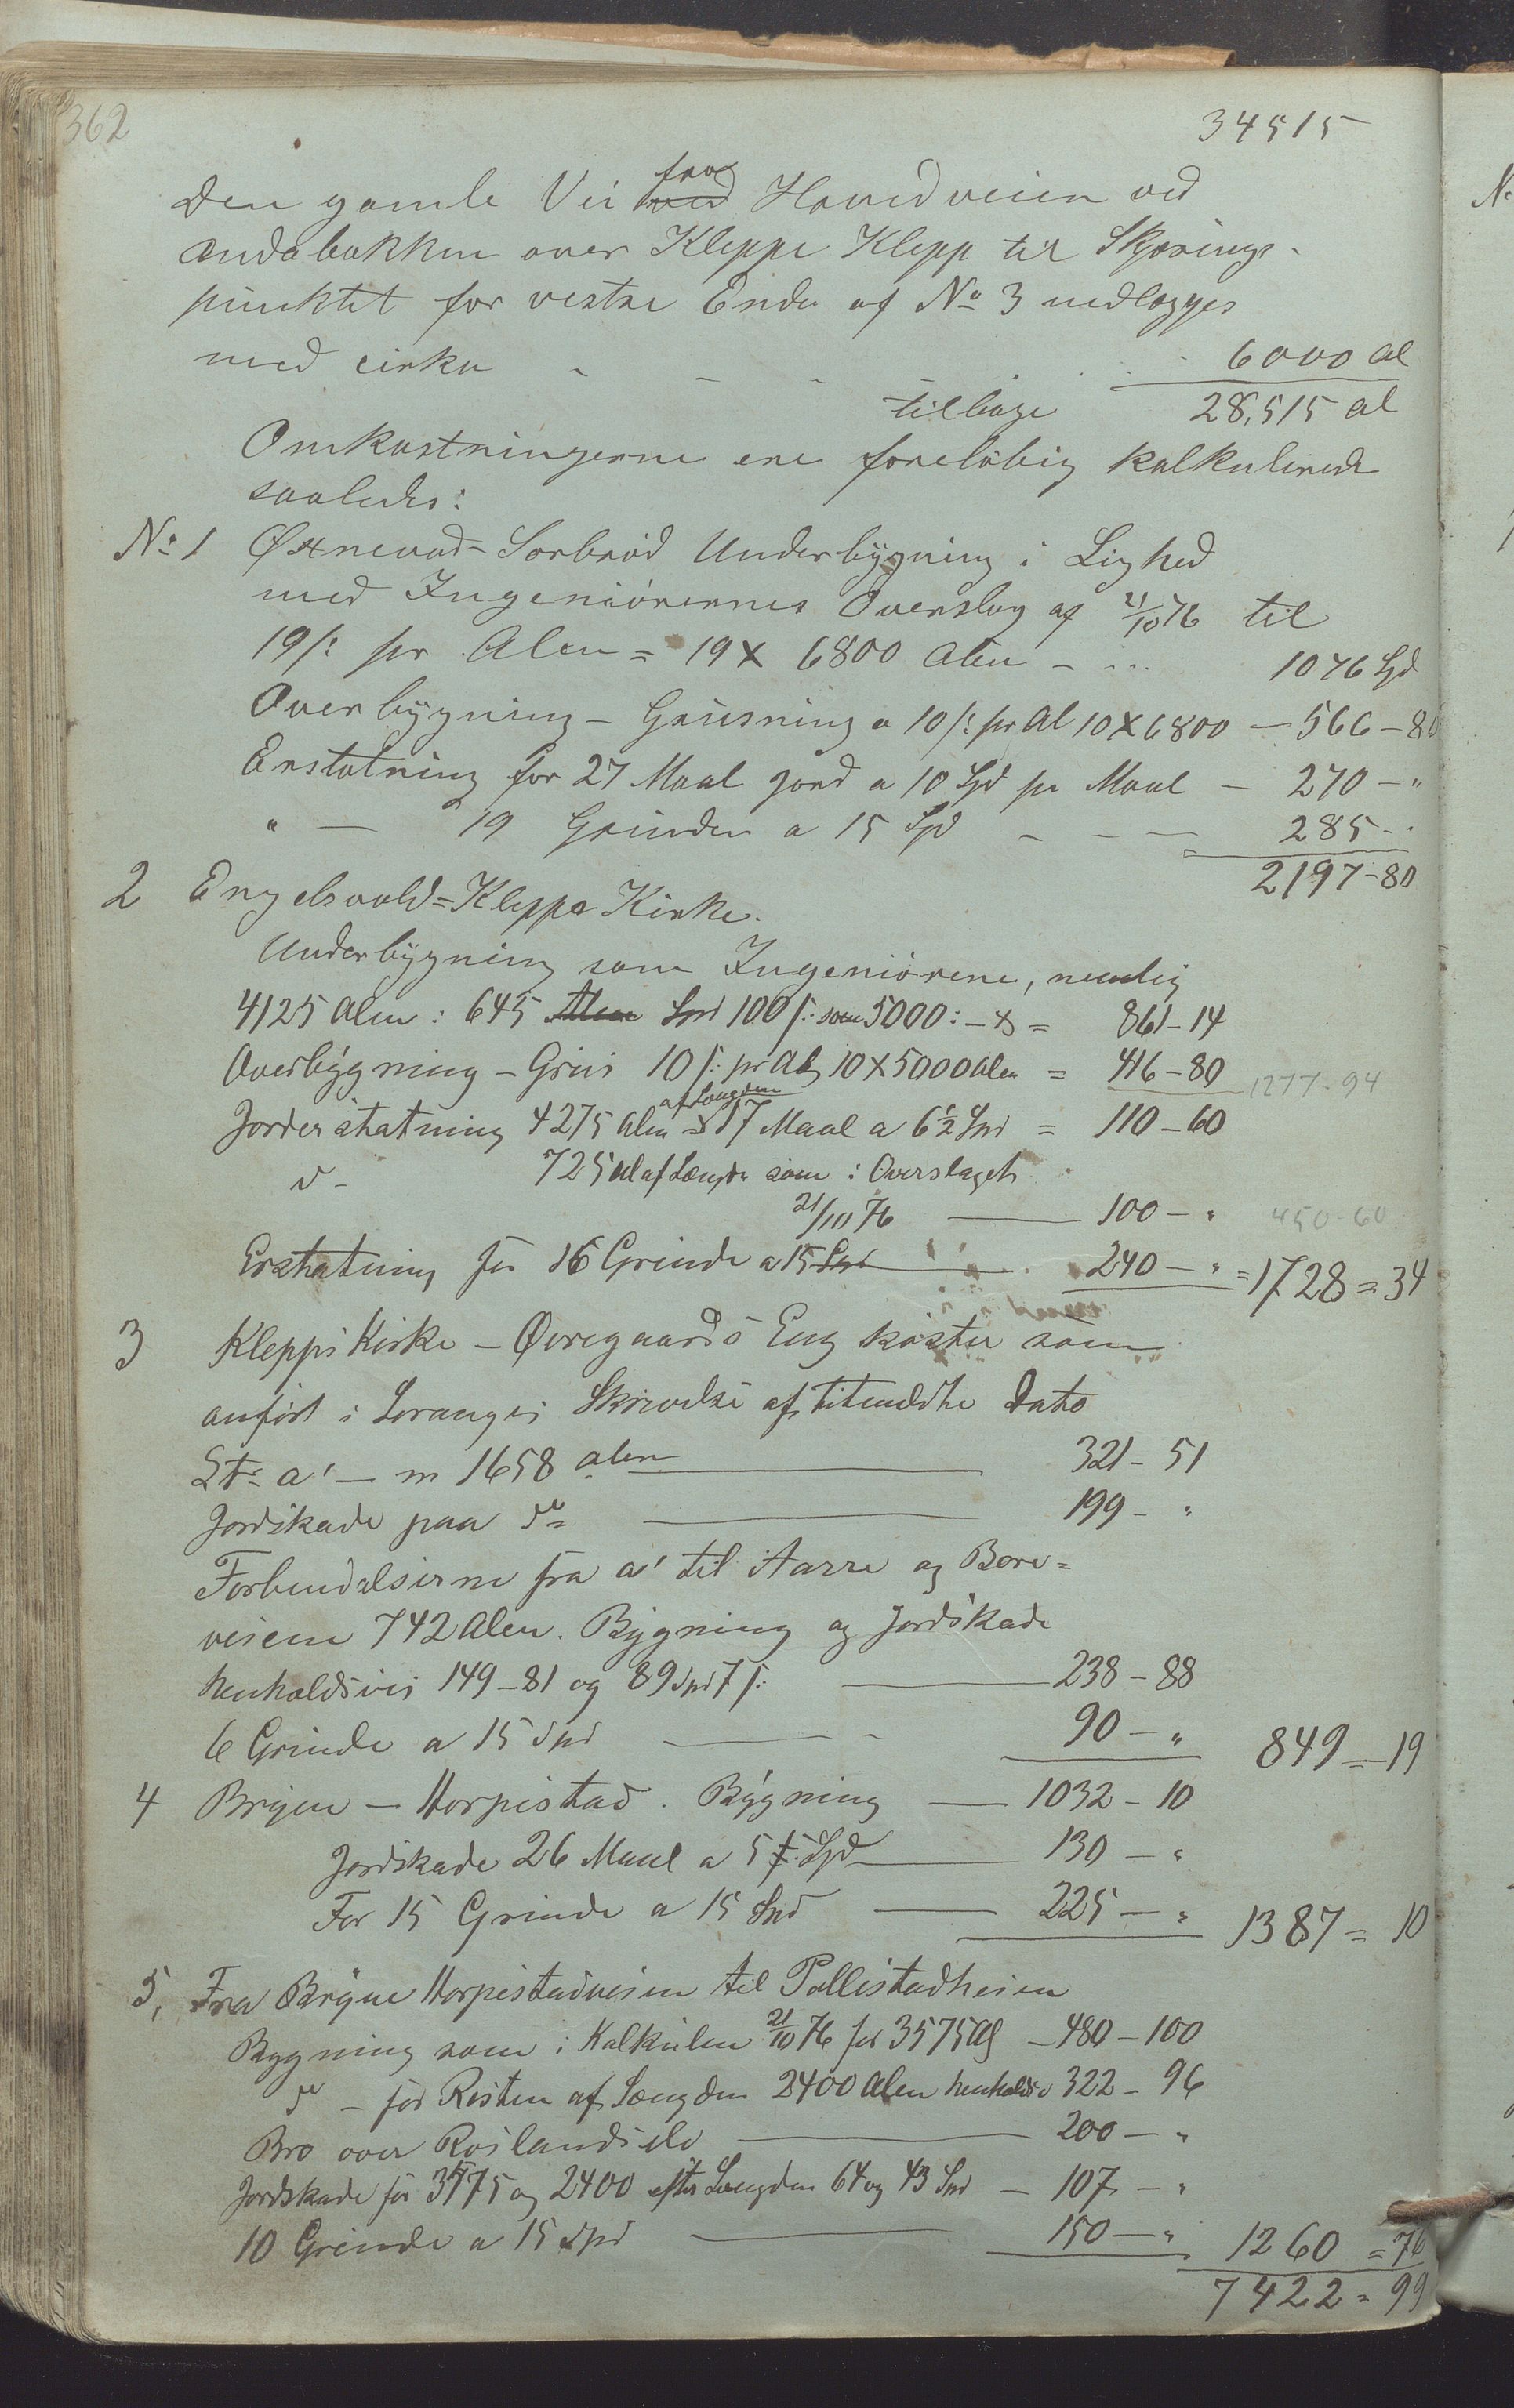 362
34515
Den gamle Vei ved fra Hovedveien ved
Andabakken over Kleppe Klepp til Skjærings-
punktet for vestre Ende af No 3 nedlægges
med cirka - - - 6000 Al
tilbage 28,515 Al
Omkostningerne ere foreløbig kalkulerede
saaledes:
No 1 Øxnevad-Sørbrød Underbygning i Lighed
med Ingeniörernes Overslag af 21/10 76 til
19 /: pr Alen = 19 X 6800 Alen - ... 1076 Spd
Overbygning - Grusning a 10 /: pr Al 10 X 6800 - 566 - 80
Erstatning for 27 Maal Jord a 10 Spd pr Maal - 270 - "
" - 19 Grinder a 15 Spd - - - 285 - "
2197 - 80
2 Engelsvold = Kleppe Kirke.
Underbygning som Ingeniörene, nemlig
4125 Alen : 645 Alen Spd 100 /: som 5000 : - x = 861 - 14
Overbygning - Grus 10 /: pr Al, 10 X 5000 Alen = 416 - 80
1277 - 94
Jorderstatning 4275 Alen af Længden = 17 Maal a 6 1/2 Spd = 110 - 60
do - 725 Al af Længde som i Overslaget
21/10 76 - 100 - " 450 - 60
Erstatning for 16 Grinde a 15 Spd 240 - " = 1728 = 34
3 Kleppe Kirke - Øvregaards Eng koster som
anført i Lorange's Skrivelse af titmeldte Dato
Str a' - m 1658 alen 321 - 51
Jordskade paa do 199 - "
Forbindelserne fra a' til Aarre og Bore=
veiene 742 Alen. Bygning og Jordskade
henholdsvis 149 - 81 og 89 Spd 7 /: 238 - 88
6 Grinde a 15 Spd - 90 - " 849 - 19
4 Bryne - Horpestad. Bygning 1032 - 10
Jordskade 26 Maal a 5 Spd 130 - "
For 15 Grinde a 15 Spd 225 - " 1387 = 10
5, Fra Bryne Horpestadveien til Pollestadheien
Bygning som i Kalkulen 21/10 76 for 3575 Al - 480 - 100
do - for Resten af Længden 2400 Alen henholdsv 322 - 96
Bro over Roslandselv 200 - "
Jordskade for 3575 og 2400 efter Længden 64 og 43 Spd - 107 - "
10 Grinde a 15 Spd 150 - " 1260 = 76
7422 = 99